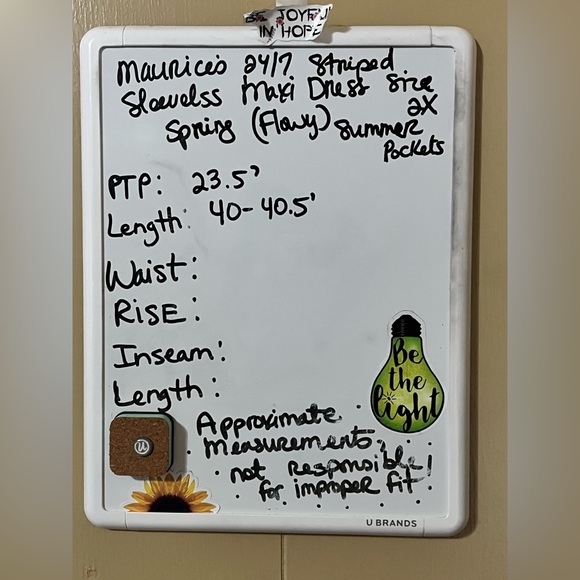 BE JOYFUL
IN HOPE
Maurice's 24/7 Striped
Sleevelss Maxi Dress Size
2X
Spring (Flowy) Summer
Pockets
PTP: 23.5'
Length: 40-40.5'
Waist:
RISE:
Inseam:
Length:
Be
the
light
Approximate
measurements,
not responsible
for improper fit
U BRANDS